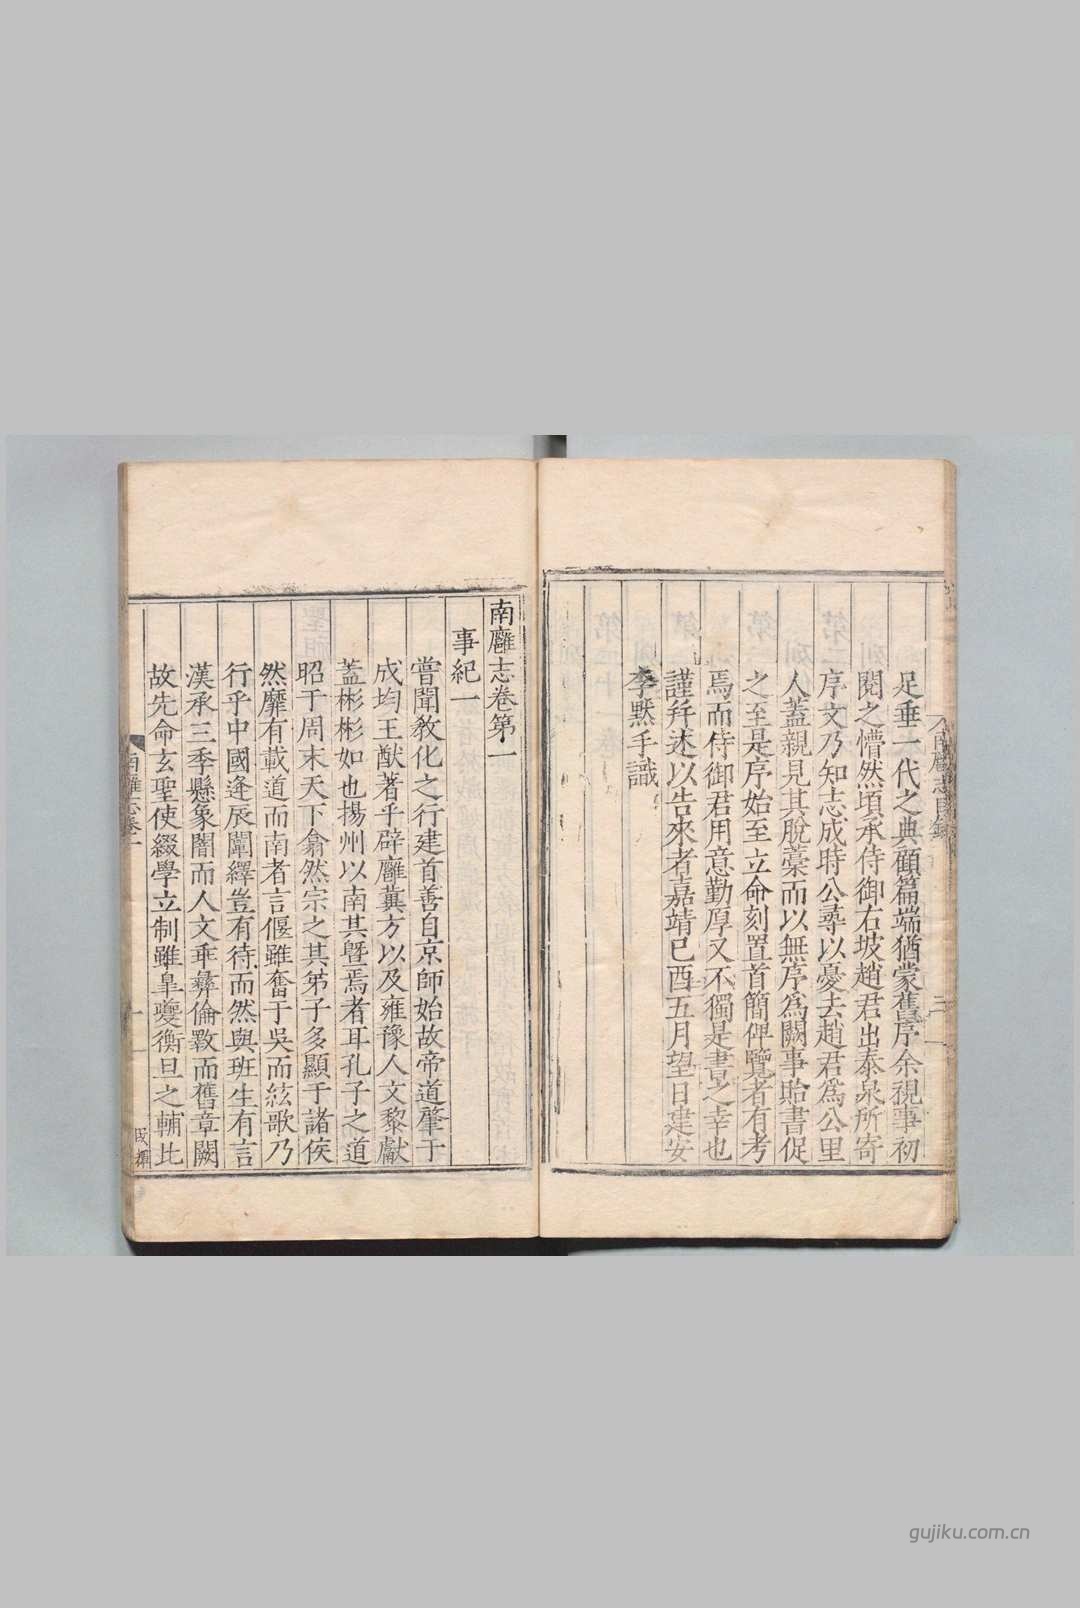 足垂一代之典顧篇端猶蒙舊序余視事初
閱之懵然頃承侍御右坡趙君出泰泉所寄
序文乃知志成時公尋以憂去趙君為公里
人蓋親見其脫藁而以無序爲闕事貽書促
之至是序始至立命刻置首簡俾覽者有考
焉而侍御君用意勤厚又不獨是書之幸也
謹并述以告來者嘉靖己酉五月望日建安
李默手識
南廱志卷第一
事紀一
嘗聞教化之行建首善自京師始故帝道肇于
成均王猷著乎辟廱冀方以及雍豫人文黎獻
蓋彬彬如也揚州以南其曁焉者耳孔子之道
昭于周末天下翕然宗之其弟子多顯于諸侯
然靡有載道而南者言偃雖奮于吳而絃歌乃
行乎中國逢辰闡繹豈有待而然與班生有言
漢承三季懸象闇而人文乖彝倫斁而舊章闕
故先命玄聖使綴學立制雖皐夔衡旦之輔比
南廱志卷一
一
gujiku.com.cn